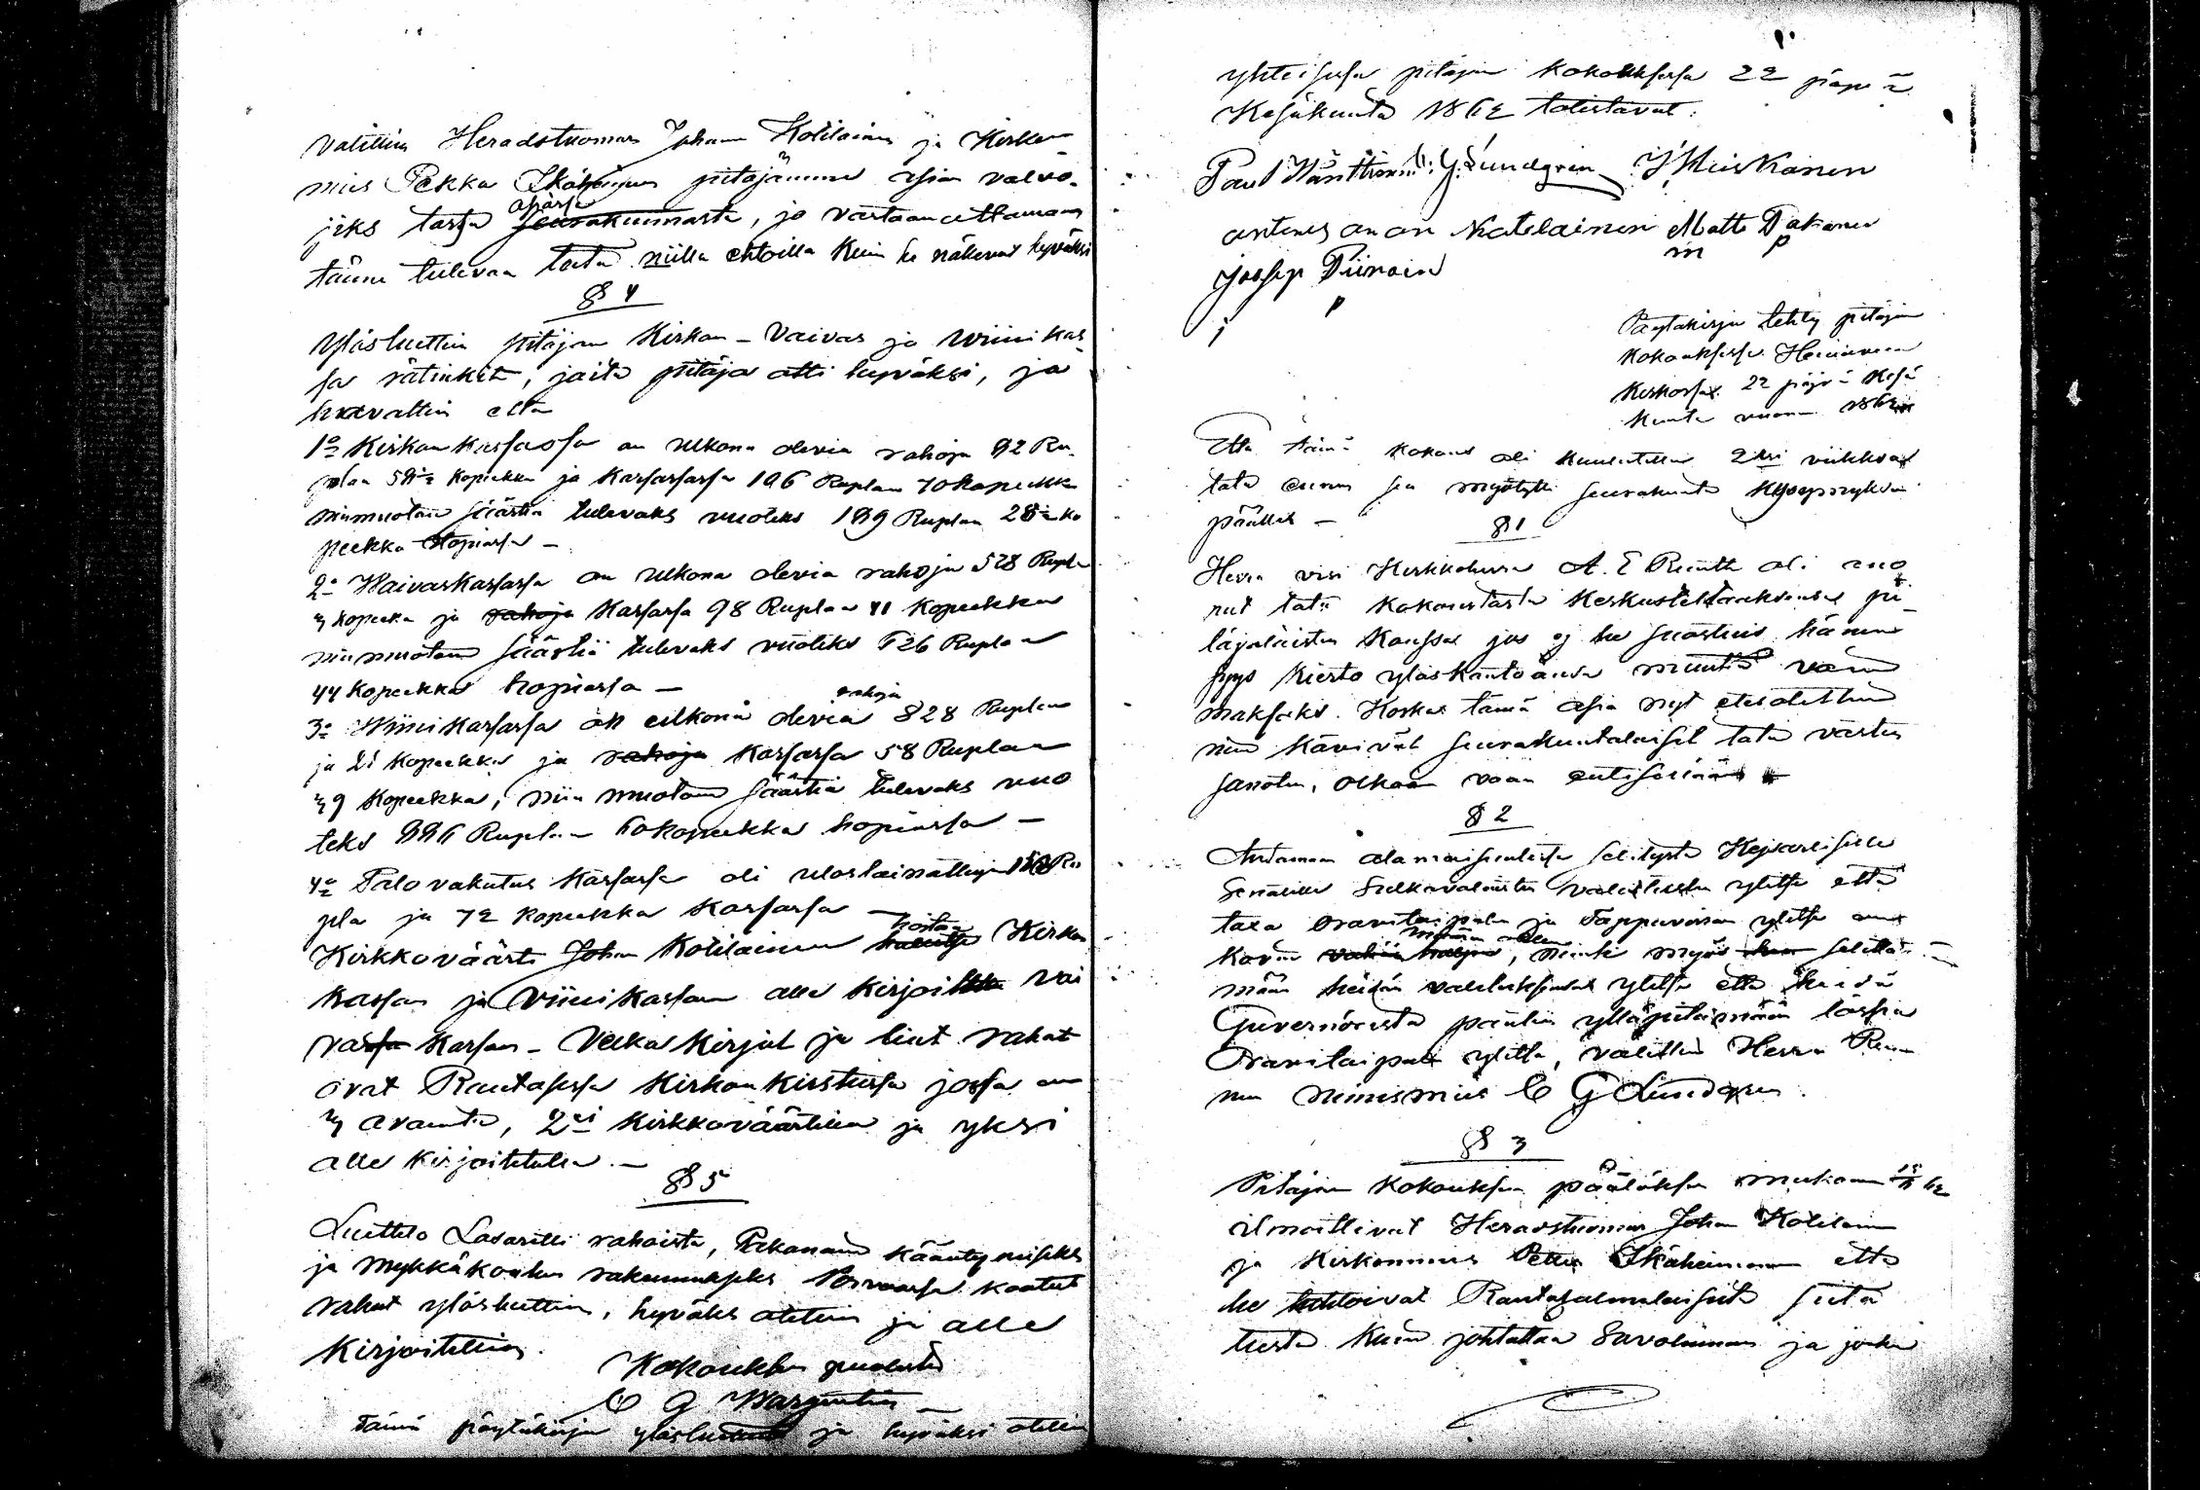 valittiin Heradstuomari Johan Kotilainen ja Kirkon-
mies Pekka Ikäheimonen pitäjämme asian valvo-
jiks tässä asiassa seurakunnasta, ja vastaan ottamaan
tänne tulevaa teetä niillä ehtoilla kuin he näkevät hyväksi
§ 4
Ylösluettiin pitäjän Kirkon- Vaivas ja Wiini kas
sa rätinkit, jaita pitäjä otti hyväksi, ja
havaittiin että
1o Kirkon kassassa on ulkona olevia rahoja 92 Ru
plaa kopekka ja kassassa 106 Ruplaa 70 kopekka
niinmuotoon säästiä tulevaks vuoteks 199 Ruplaa 28 ko
peekka hopiassa -
2o Waivaskassassa on ulkona olevia rahoja 528 Rupla
3 kopeeka ja rahoja kassassa 98 Ruplaa 41 kopeekka
niinmuotoon säästiä tulevaks vuoteks 626 Ruplaa
44 kopeekka hopiassa -
3o Wiinikassassa on ulkona olevia rahoja 828 Ruplaa
ja 21 kopeekka ja rahoja kassassa 58 Ruplaa
39 kopeekka, niin muotoon säästiä tulevaks vuo
teks 886 Ruplaa 60 kopeekka hopiassa -
4o Palovakutus kassassa oli ulostainattuja Ru
pla ja 72 kopeekka kassassa -
Kirkkoväärti Johan Kotilainen hoitaa Kirkon
kassan ja Viinikassan alle kirjoittanut vai
vassa kassan - Velkakirjat ja liiat rahat
ovat Rautasessa Kirkon kirstussa jossa on
3 avainta, 2si Kirkkoväärtillä ja yksi
alle kirjoitetulla. -
§ 5
Luettelo Lasaretti rahoista, Pakanain kääntymiseks
ja Mykkäkoulun rakennukseks Porvoossa kootut
rahat ylösluettiin, hyväks otettiin ja alle
kirjoitettiin.
Kokouksen puolesta
C G Wargentin -
Tämä pöytäkirja ylösluettu ja hyväksi otettiin
yhteisessä pitäjän kokouksessa 22 päivä
Kesäkuuta 1862 todistavat:
Paul Hänttinen C. G. Lundgren J Huiskanen
antens anon Natelainen Matts Pakanen
m p
joosep Piiroin
j p
Pöytäkirja tehty pitäjän
kokouksessa Heinäveen
Kirkossa 22 päivä Kesä
kuuta vuonna 1862
Että tämä kokous oli kuulutettu 2ksi viikkoa
tätä ennen sen myötytti seurakunta kysymyksen
päälle -
§ 1
Herra viisi Kirkkoherra A. E Reinth oli ano
nut tätä kokousta keskustellaksensa pi
täjäläisten kanssa jos ei he suostuis hänen
syys kierto yläskantoansa muuta vaan
maksaks. Koska tämä asia nyt etesotettiin
niin kävivät seurakuntalaiset tätä vasten
sanoten, olkaan vaan entiseensä
§ 2
Antamaan alamaisimmasta selitystä Keisarillisen
Senatille valitusten ylitse että
taxa Oravitaipalen ja Tappuvirran ylitse on
kovin, niinkö myös selittä-
mään heidän valituksensa ylitse että heidä
Guvernörista pantiin ylläpitämään lossia
Oravitaipalen ylitse, valittiin Herra Ruu
nun nimismies C G Lundgren.
§ 3
Pitäjän kokouksen päätöksen mukaan 62
ilmoittivat Heradstuomari Johan Kotilainen
ja Kirkonmies Pekka Ikäheimonen että
he kohtoivat Rantasalmelaisista siitä
tiestä kuin johtattaa Savolinnaan ja jonka